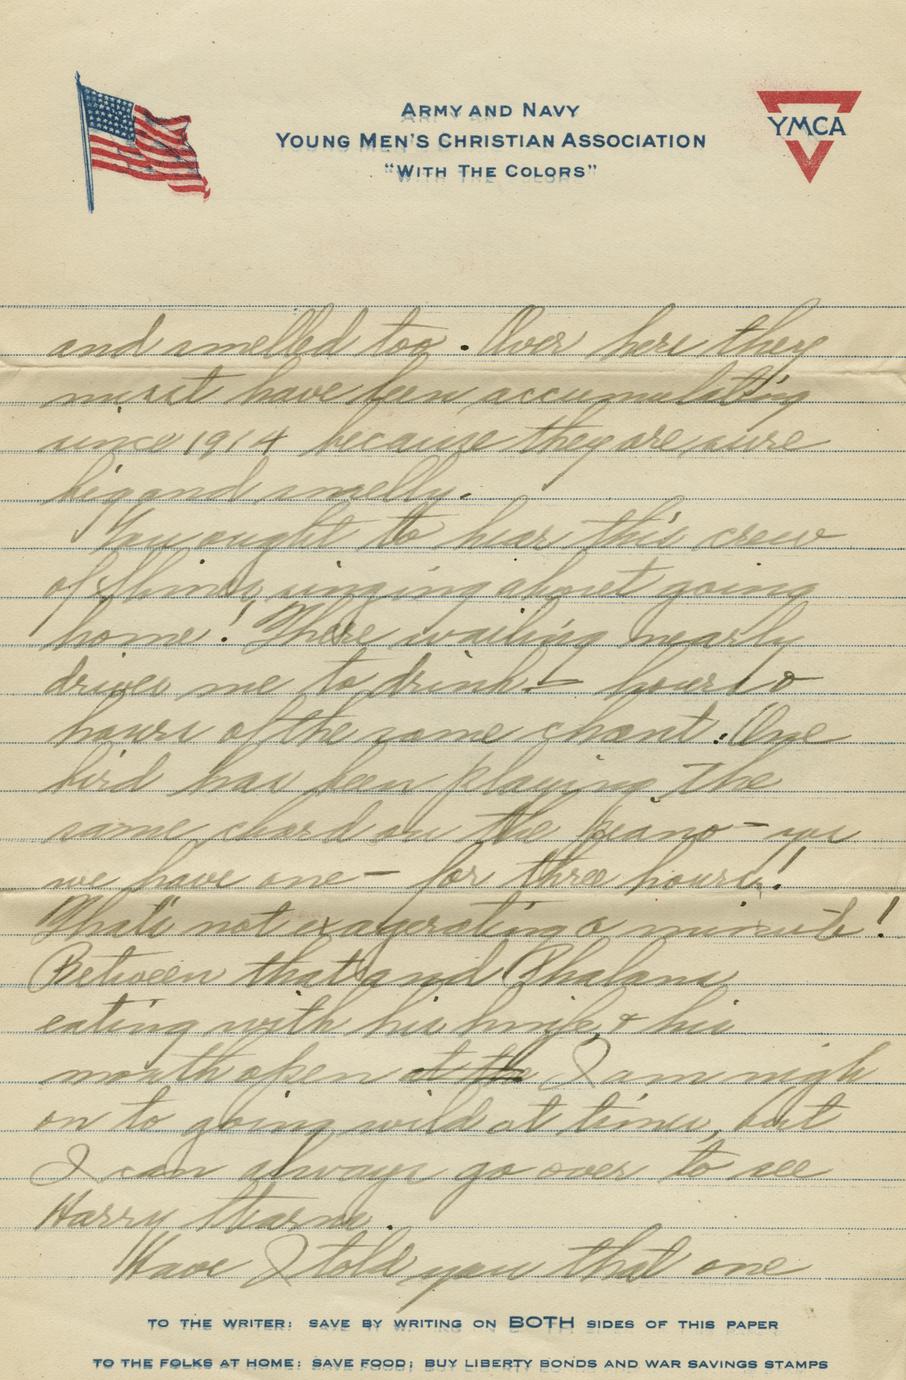 ARMY AND NAVY
YOUNG MEN'S CHRISTIAN ASSOCIATION
"WITH THE COLORS"
YMCA
and smelled too. Over here they
must have been accumulating
since 1914 because they are sure
big and smelly.
You ought to hear this crew
of singing about going
home! There wailing nearly
drives me to drink - hours &
hours of the same chant. One
bird has been playing the
same chord on the piano - yes
we have one - for three hours!
That's not exagerating a minute!
Between that and Phalans
eating with his knife & his
mouth open at the I am nigh
on to going wild at times, but
I can always go over to see
Harry Stearns.
Have I told you that one
TO THE WRITER: SAVE BY WRITING ON BOTH SIDES OF THIS PAPER
TO THE FOLKS AT HOME: SAVE FOOD; BUY LIBERTY BONDS AND WAR SAVINGS STAMPS